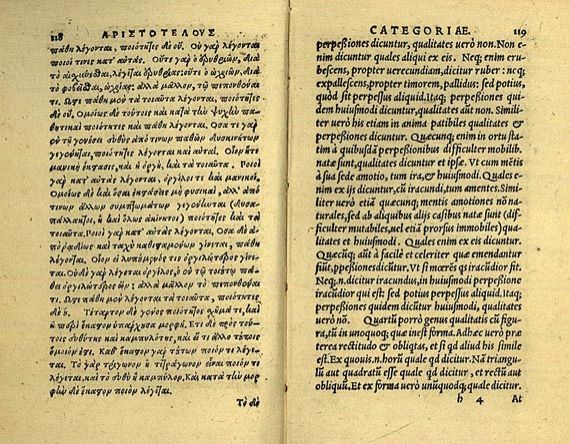 118 ΑΡΙΣΤΟΤΕΛΟΥΣ
πάθη λέγονται, ποιότητες δὲ οὔ. Οὐ γὰρ λέγονται
ποιοί τινες κατ' αὐτάς. Οὔτε γὰρ ὁ ἐρυθριῶν, διὰ
τὸ αἰσχυνθῆναι, λέγεται
τὸ φοβεῖσθαι, ἀλλὰ μᾶλλον, τῷ πεπονθέναι
τι. Ὥστε πάθη μὲν τὰ τοιαῦτα λέγονται, ποιότητες
δὲ οὔ. Ὁμοίως δὲ τούτοις καὶ κατὰ τὴν ψυχὴν παθη-
τικαὶ ποιότητες καὶ πάθη λέγονται. Ὅσα τε γὰρ
γεγένηται, ποιότητες λέγονται καὶ αὗται. Οἷον ἥτε
μανικὴ ἔκστασις, καὶ ἡ ὀργὴ, καὶ τὰ τοιαῦτα. Ποιοὶ
γὰρ κατ' αὐτὰς λέγονται, ὀργίλοι τε καὶ μανικοί.
Ὁμοίως δὲ καὶ ὅσαι ἐκστάσεις μὴ φυσικαὶ, ἀλλ' ἀπό
τινων ἄλλων συμπτωμάτων γεγένηνται
ποιότητες καὶ τὰ
τοιαῦτα. Ποιοὶ γὰρ κατ' αὐτὰς λέγονται. Ὅσα δὲ ἀ-
πὸ ταχὺ καθισταμένων γίνεται, πάθη
λέγονται. Οἷον εἰ λυπούμενός τις ὀργιλώτερος γίνε-
ται. Οὐδὲ γὰρ λέγεται ὀργίλος, ὁ ἐν τῷ τοιούτῳ πά-
θει ὀργιλώτερος ὤν: ἀλλὰ μᾶλλον τι πεπονθέναι.
Ὥστε πάθη μὲν λέγεται τὰ τοιαῦτα, ποιότητες
δὲ οὔ. Τέταρτον δὲ γένος ποιότητος σχῆμά τε, καὶ
ἡ περὶ ἕκαστον ὑπάρχουσα μορφή. Ἔτι δὲ πρὸς τού-
τοις εὐθύτης καὶ καμπυλότης, καὶ εἴ τι ἄλλο τούτοις
ὅμοιόν ἐστι. Καθ' ἕκαστον γὰρ τούτων ποιόν τι λέγε-
ται. Τὸ γὰρ τρίγωνον ἢ τετράγωνον εἶναι ποιόν τι
λέγεται, καὶ τὸ εὐθὺ ἢ καμπύλον. Καὶ κατὰ τὴν μορ-
φὴν δὲ ἕκαστον ποιόν τι λέγεται.
Τὸ δὲ
CATEGORIAE. 119
perpeßiones dicuntur, qualitates uerò non. Non e-
nim dicuntur quales aliqui ex eis. Neq; enim eru-
bescens, propter uerecundiam, dicitur ruber: neq;
expallescens, propter timorem, pallidus: sed potius,
quòd sit perpeßus aliquid. Itaq; perpeßiones qui-
dem huiusmodi dicuntur, qualitates aut non. Simili-
ter uerò his etiam in anima patibiles qualitates &
perpeßiones dicuntur. Quæcunq; enim in ortu sta-
tim à quibusdā perpeßionibus difficulter mobilib.
natæ sunt, qualitates dicuntur et ipsæ. Vt cum mētis
à sua sede amotio, tum ira, & huiusmodi. Quales e-
nim ex ijs dicuntur, cū iracundi, tum amentes. Simi-
liter uerò etiā quæcunq; mentis amotiones nō na-
turales, sed ab aliquibus alijs casibus natæ sunt (dif-
ficulter mutabiles, uel etiā prorsus immobiles) qua-
litates et huiusmodi. Quales enim ex eis dicuntur.
Quæcūq; aūt à facilè et celeriter quæ emendantur
fiūt, ppeßiones dicūtur. Vt si mœrēs qs iracūdior fit.
Neq; n. dicitur iracundus, in huiusmodi perpeßione
iracūdior qui est: sed potius perpessus aliquid. Itaq;
perpeßiones quidem dicūtur huiusmodi, qualitates
uerò nō. Quartū porrò genus qualitatis cū figu-
ra, tū in unoquoq; quæ inest forma. Adhæc uerò præ
terea rectitudo & obliqtas, et si qd aliud his simile
est. Ex quouis. n. horū quale qd dicitur. Nā triangu-
lū aut quadratū esse quale qd dicitur, et rectū aut
obliquū. Et ex forma uerò unūquodq; quale dicitur.
h 4 At